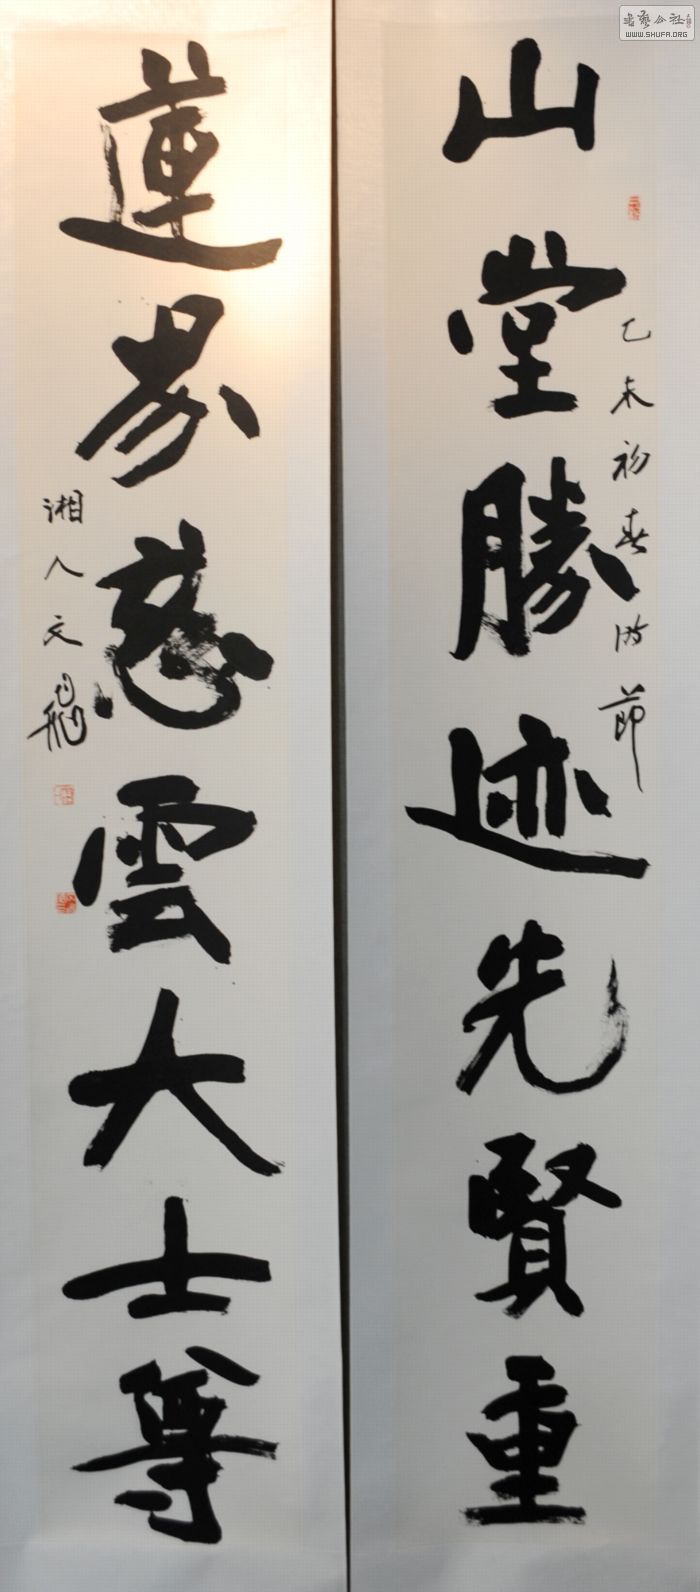 山堂勝迹先賢重
乙未初春時節
蓮界慈雲大士尊
湘人文飛
WWW.SHUFA.ORG